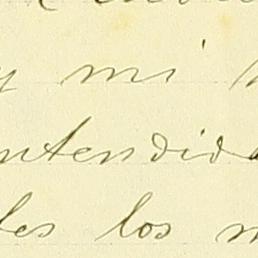 y mi
ntendida
les los m